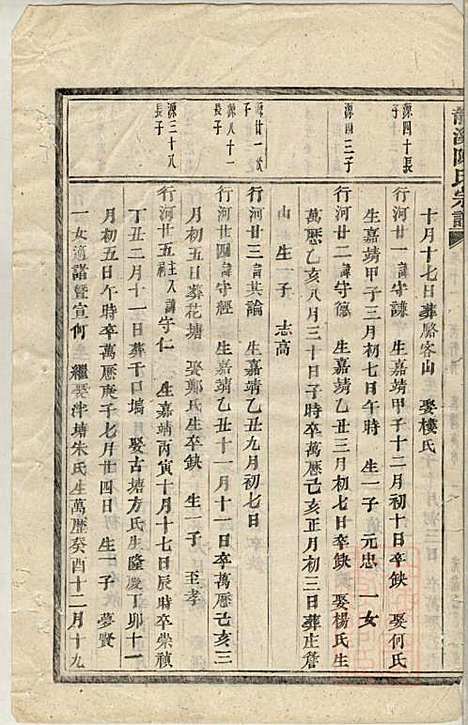 龍溪陳氏宗譜
十月十七日葬駱客山 娶樓氏
源四十長子
行河廿一諱守謙 生嘉靖甲子十二月初十日卒缺 娶何氏
生嘉靖甲子三月初七日午時 生一子 元忠 一女
源四三子
行河廿二諱守德 生嘉靖乙丑三月初七日卒缺 娶楊氏生
萬歷乙亥八月三十日子時卒萬歷己亥正月初三日葬庄詹
山 生一子 志高
源廿一次子
行河廿三諱其論 生嘉靖乙丑九月初七日
源八十一長子
行河廿四諱守經 生嘉靖乙丑十一月十一日卒萬歷己亥三
月初五日葬花塘 娶鄭氏生卒缺 生一子 至孝
源三十八長子
行河廿五主入諱守仁 生嘉靖丙寅十月十七日辰時卒崇禎
丁丑二月十一日葬千口塢 娶古塘方氏生隆慶丁卯十一
月初五日午時卒萬歷庚子七月廿四日 生一子 夢賢
一女適諸暨宣何 繼娶泮塘朱氏生萬歷癸酉十二月十九